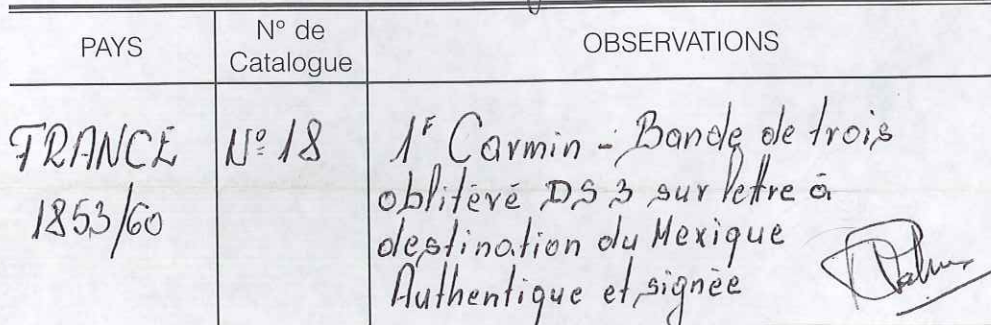 PAYS N° de Catalogue OBSERVATIONS
FRANCE N° 18 1F Carmin - Bande de trois
1853/60 oblitéré DS 3 sur lettre à
destination du Mexique
Authentique et signée